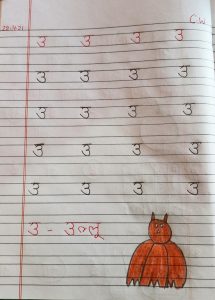 C.W
28.4.21
उ उ उ उ
उ उ उ उ
उ उ उ उ
उ उ उ उ
उ उ उ उ
उ - उल्लू